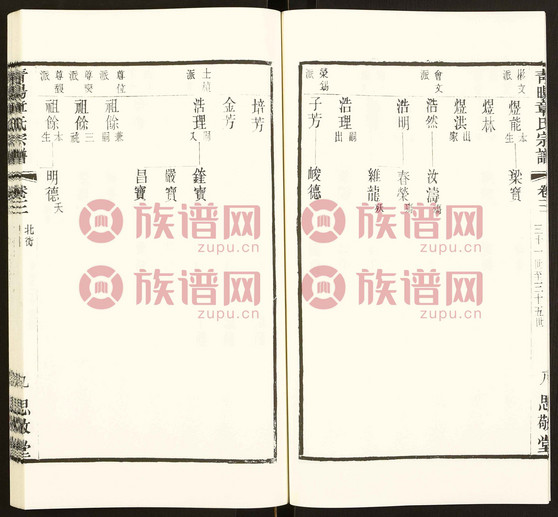 青陽章氏宗譜
卷三
三十一世至三十五世
八
思敬堂
彬文派
煜龍
本生
梁寶
煜林
煜淇
出家
會文派
浩然
汝濤
浩明
春榮
維龍
浩理
出嗣
榮錫派
子芳
峻德
培芳
金芳
士植派
浩理
又
鍾寶
嚴寶
昌寶
尊位派
祖餘
兼祧
尊榮派
祖餘
三祧
尊賢派
祖餘
本生
明德
夭
青陽章氏宗譜
卷三
北街
九
思敬堂
族谱网
zupu.cn
族谱网
zupu.cn
族谱网
zupu.cn
族谱网
zupu.cn